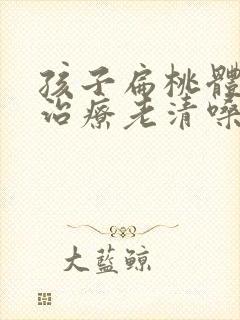 孩子扁桃體
治療老清嗓
大藍鯨